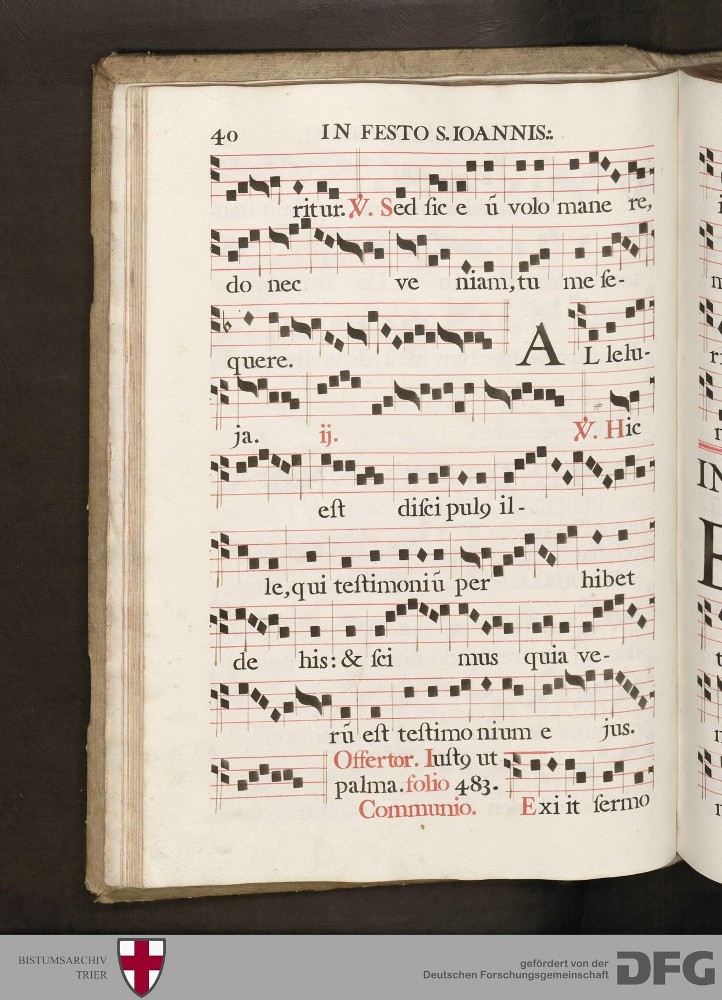 40 IN FESTO S. IOANNIS:.
ritur. ℣. Sed ſic e ū volo mane re,
do nec ve niam, tu me ſe-
quere. A L lelu-
ja. ij. ℣. Hic
eſt diſci pulꝰ il-
le, qui teſtimoniū per hibet
de his: & ſci mus quia ve-
rū eſt teſtimo nium e jus.
Offertor. Iuſtꝰ ut
palma. folio 483.
Communio. Exi it ſermo
BISTUMSARCHIV
TRIER
gefördert von der
Deutschen Forschungsgemeinschaft
DFG